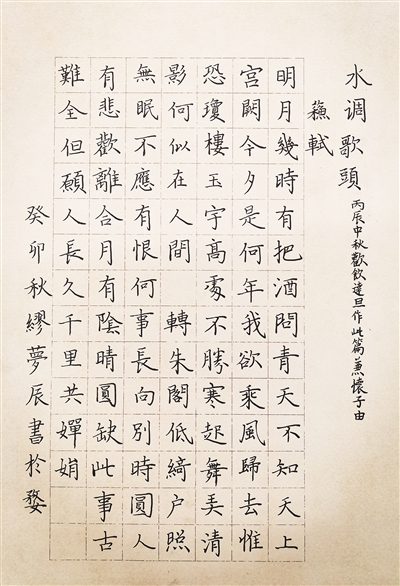 水调歌頭 丙辰中秋歡飲達旦作此篇兼懷子由
蘓軾
明月幾時有把酒問青天不知天上
宫闕今夕是何年我欲乘風歸去惟
恐瓊樓玉宇高處不勝寒起舞弄清
影何似在人間 轉朱閣低綺户照
無眠不應有恨何事長向別時圓人
有悲歡離合月有陰晴圓缺此事古
難全但願人長久千里共嬋娟
癸卯秋繆夢辰書於婺